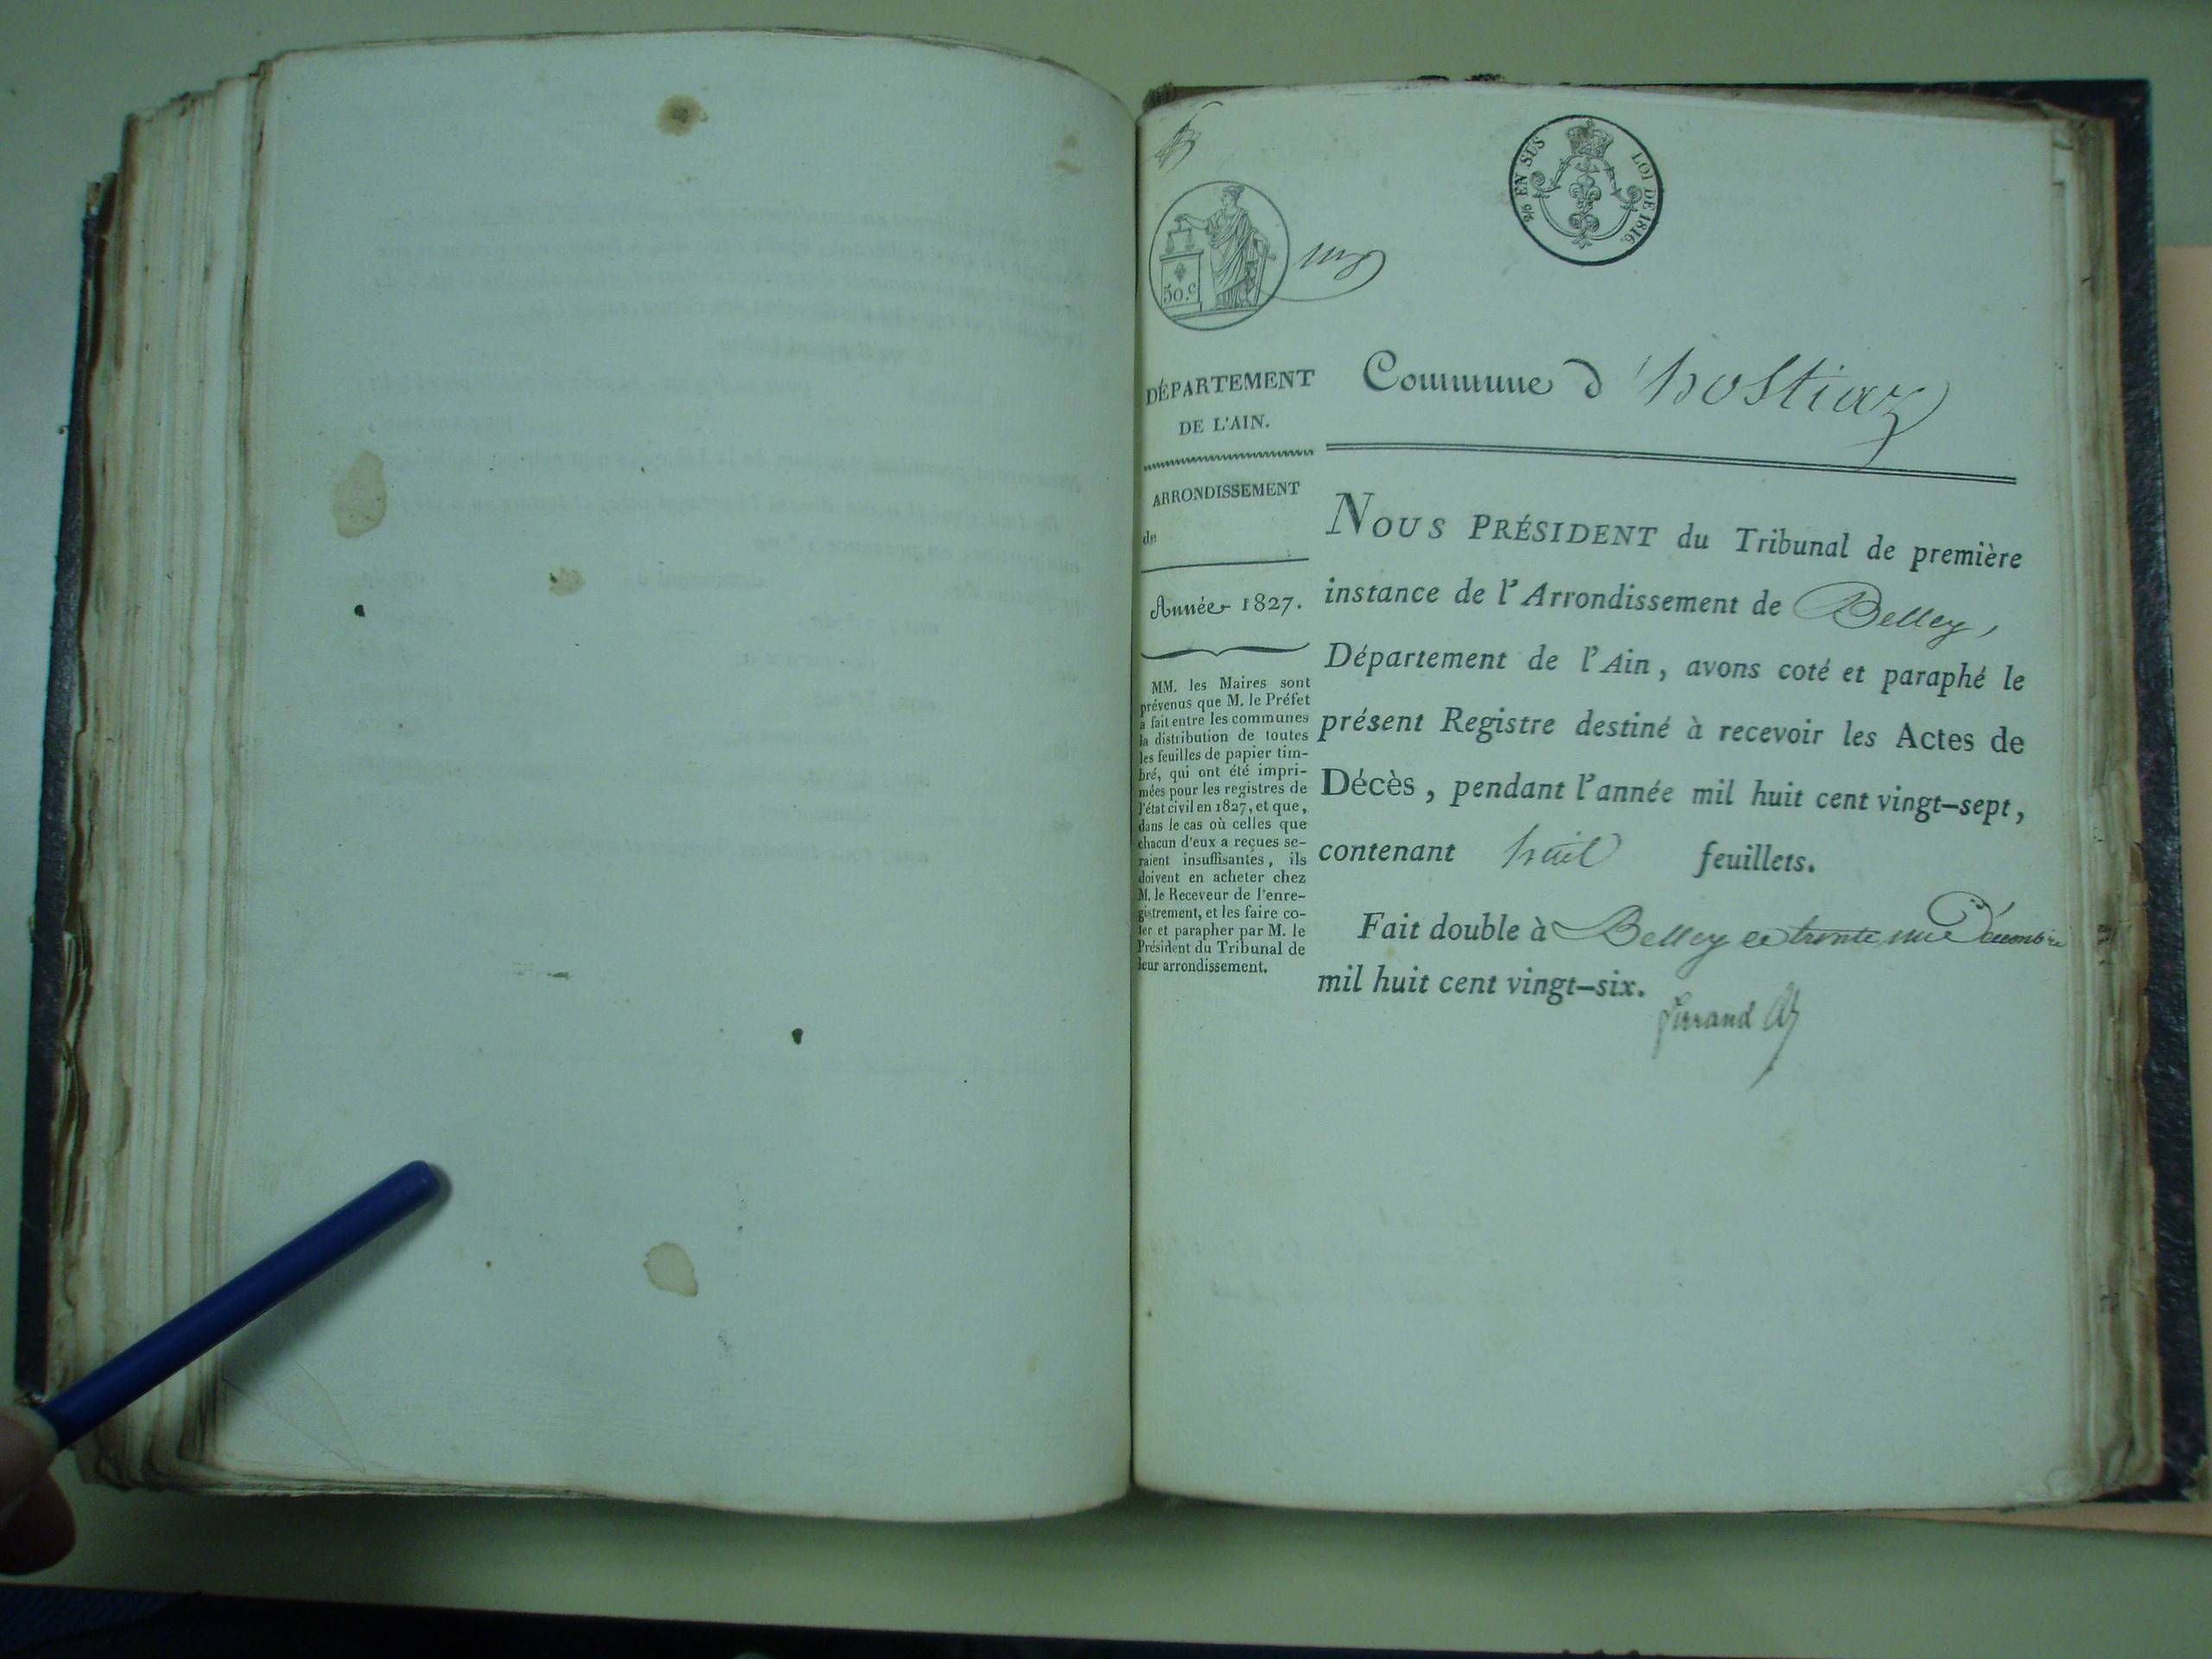 2/10 EN SUS LOI DE 1816.
50.c
un
DÉPARTEMENT
DE L'AIN.
ARRONDISSEMENT
de
Année 1827.
MM. les Maires sont
prévenus que M. le Préfet
a fait entre les communes
la distribution de toutes
les feuilles de papier tim-
bré, qui ont été impri-
mées pour les registres de
l'état civil en 1827, et que,
dans le cas où celles que
chacun d'eux a reçues se-
raient insuffisantes, ils
doivent en acheter chez
M. le Receveur de l'enre-
gistrement, et les faire co-
ter et parapher par M. le
Président du Tribunal de
leur arrondissement.
Commune d'hostiaz
NOUS PRÉSIDENT du Tribunal de première
instance de l'Arrondissement de Belley,
Département de l'Ain, avons coté et paraphé le
présent Registre destiné à recevoir les Actes de
Décès, pendant l'année mil huit cent vingt-sept,
contenant huit feuillets.
Fait double à Belley ce trente un Décembre
mil huit cent vingt-six.